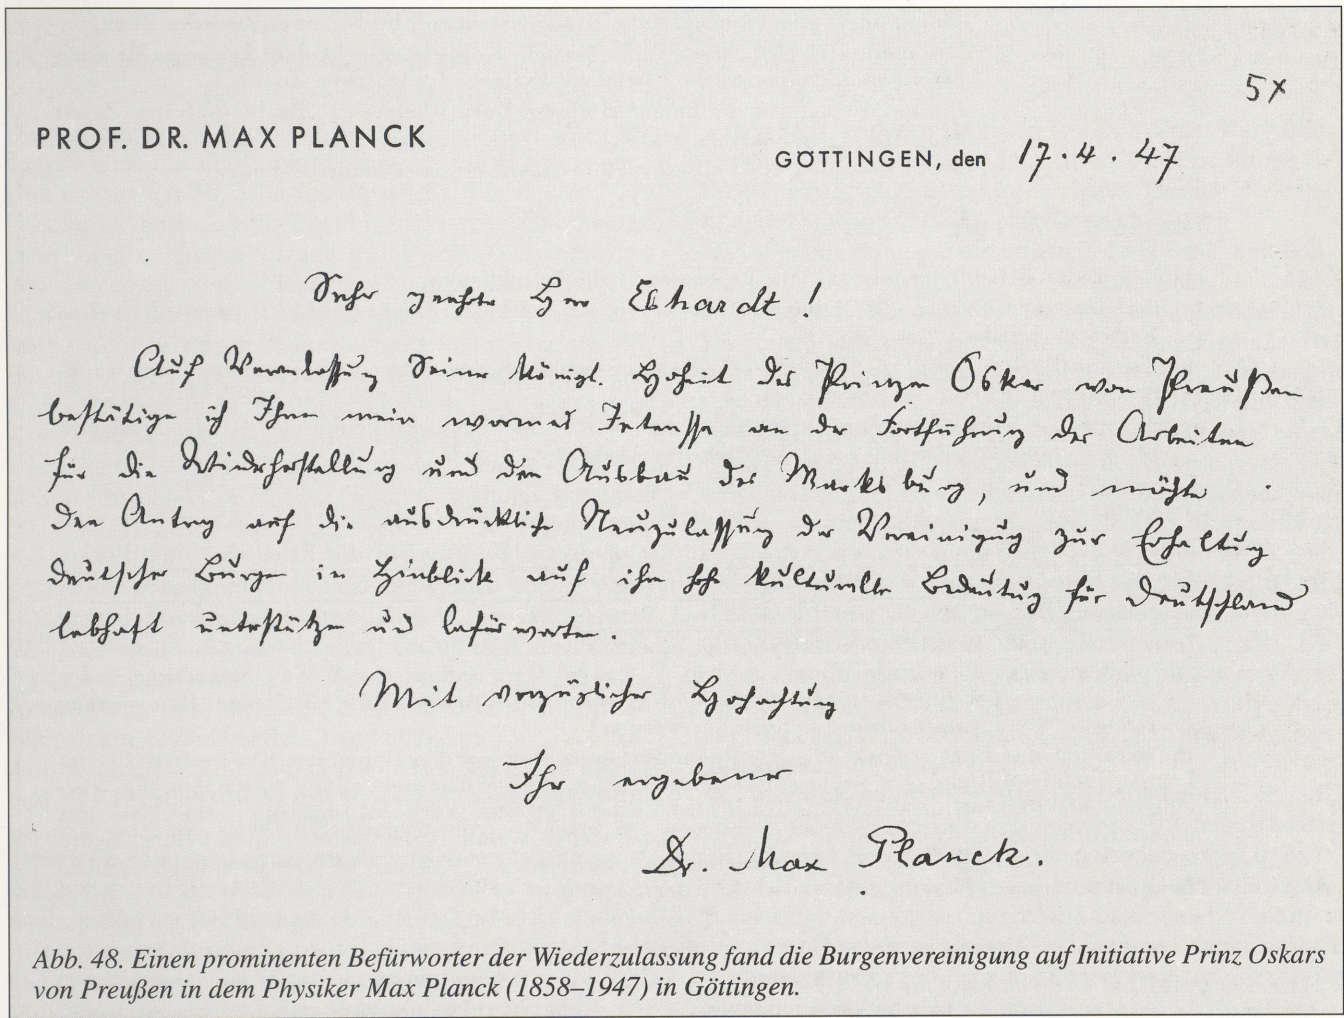 5x
PROF. DR. MAX PLANCK
GÖTTINGEN, den 17.4.47
Sehr geehrter Herr Ebhardt!
Auf Veranlassung Seiner Königl. Hoheit des Prinzen Oskar von Preußen
bestätige ich Ihnen mein warmes Interesse an der Fortführung der Arbeiten
für die Wiederherstellung und den Ausbau der Marksburg, und möchte
den Antrag auf die ausdrückliche Neuzulassung der Vereinigung zur Erhaltung
deutscher Burgen in Hinblick auf ihre hohe kulturelle Bedeutung für Deutschland
lebhaft unterstützen und befürworten.
Mit vorzüglicher Hochachtung
Ihr ergebener
Dr. Max Planck.
Abb. 48. Einen prominenten Befürworter der Wiederzulassung fand die Burgenvereinigung auf Initiative Prinz Oskars
von Preußen in dem Physiker Max Planck (1858–1947) in Göttingen.